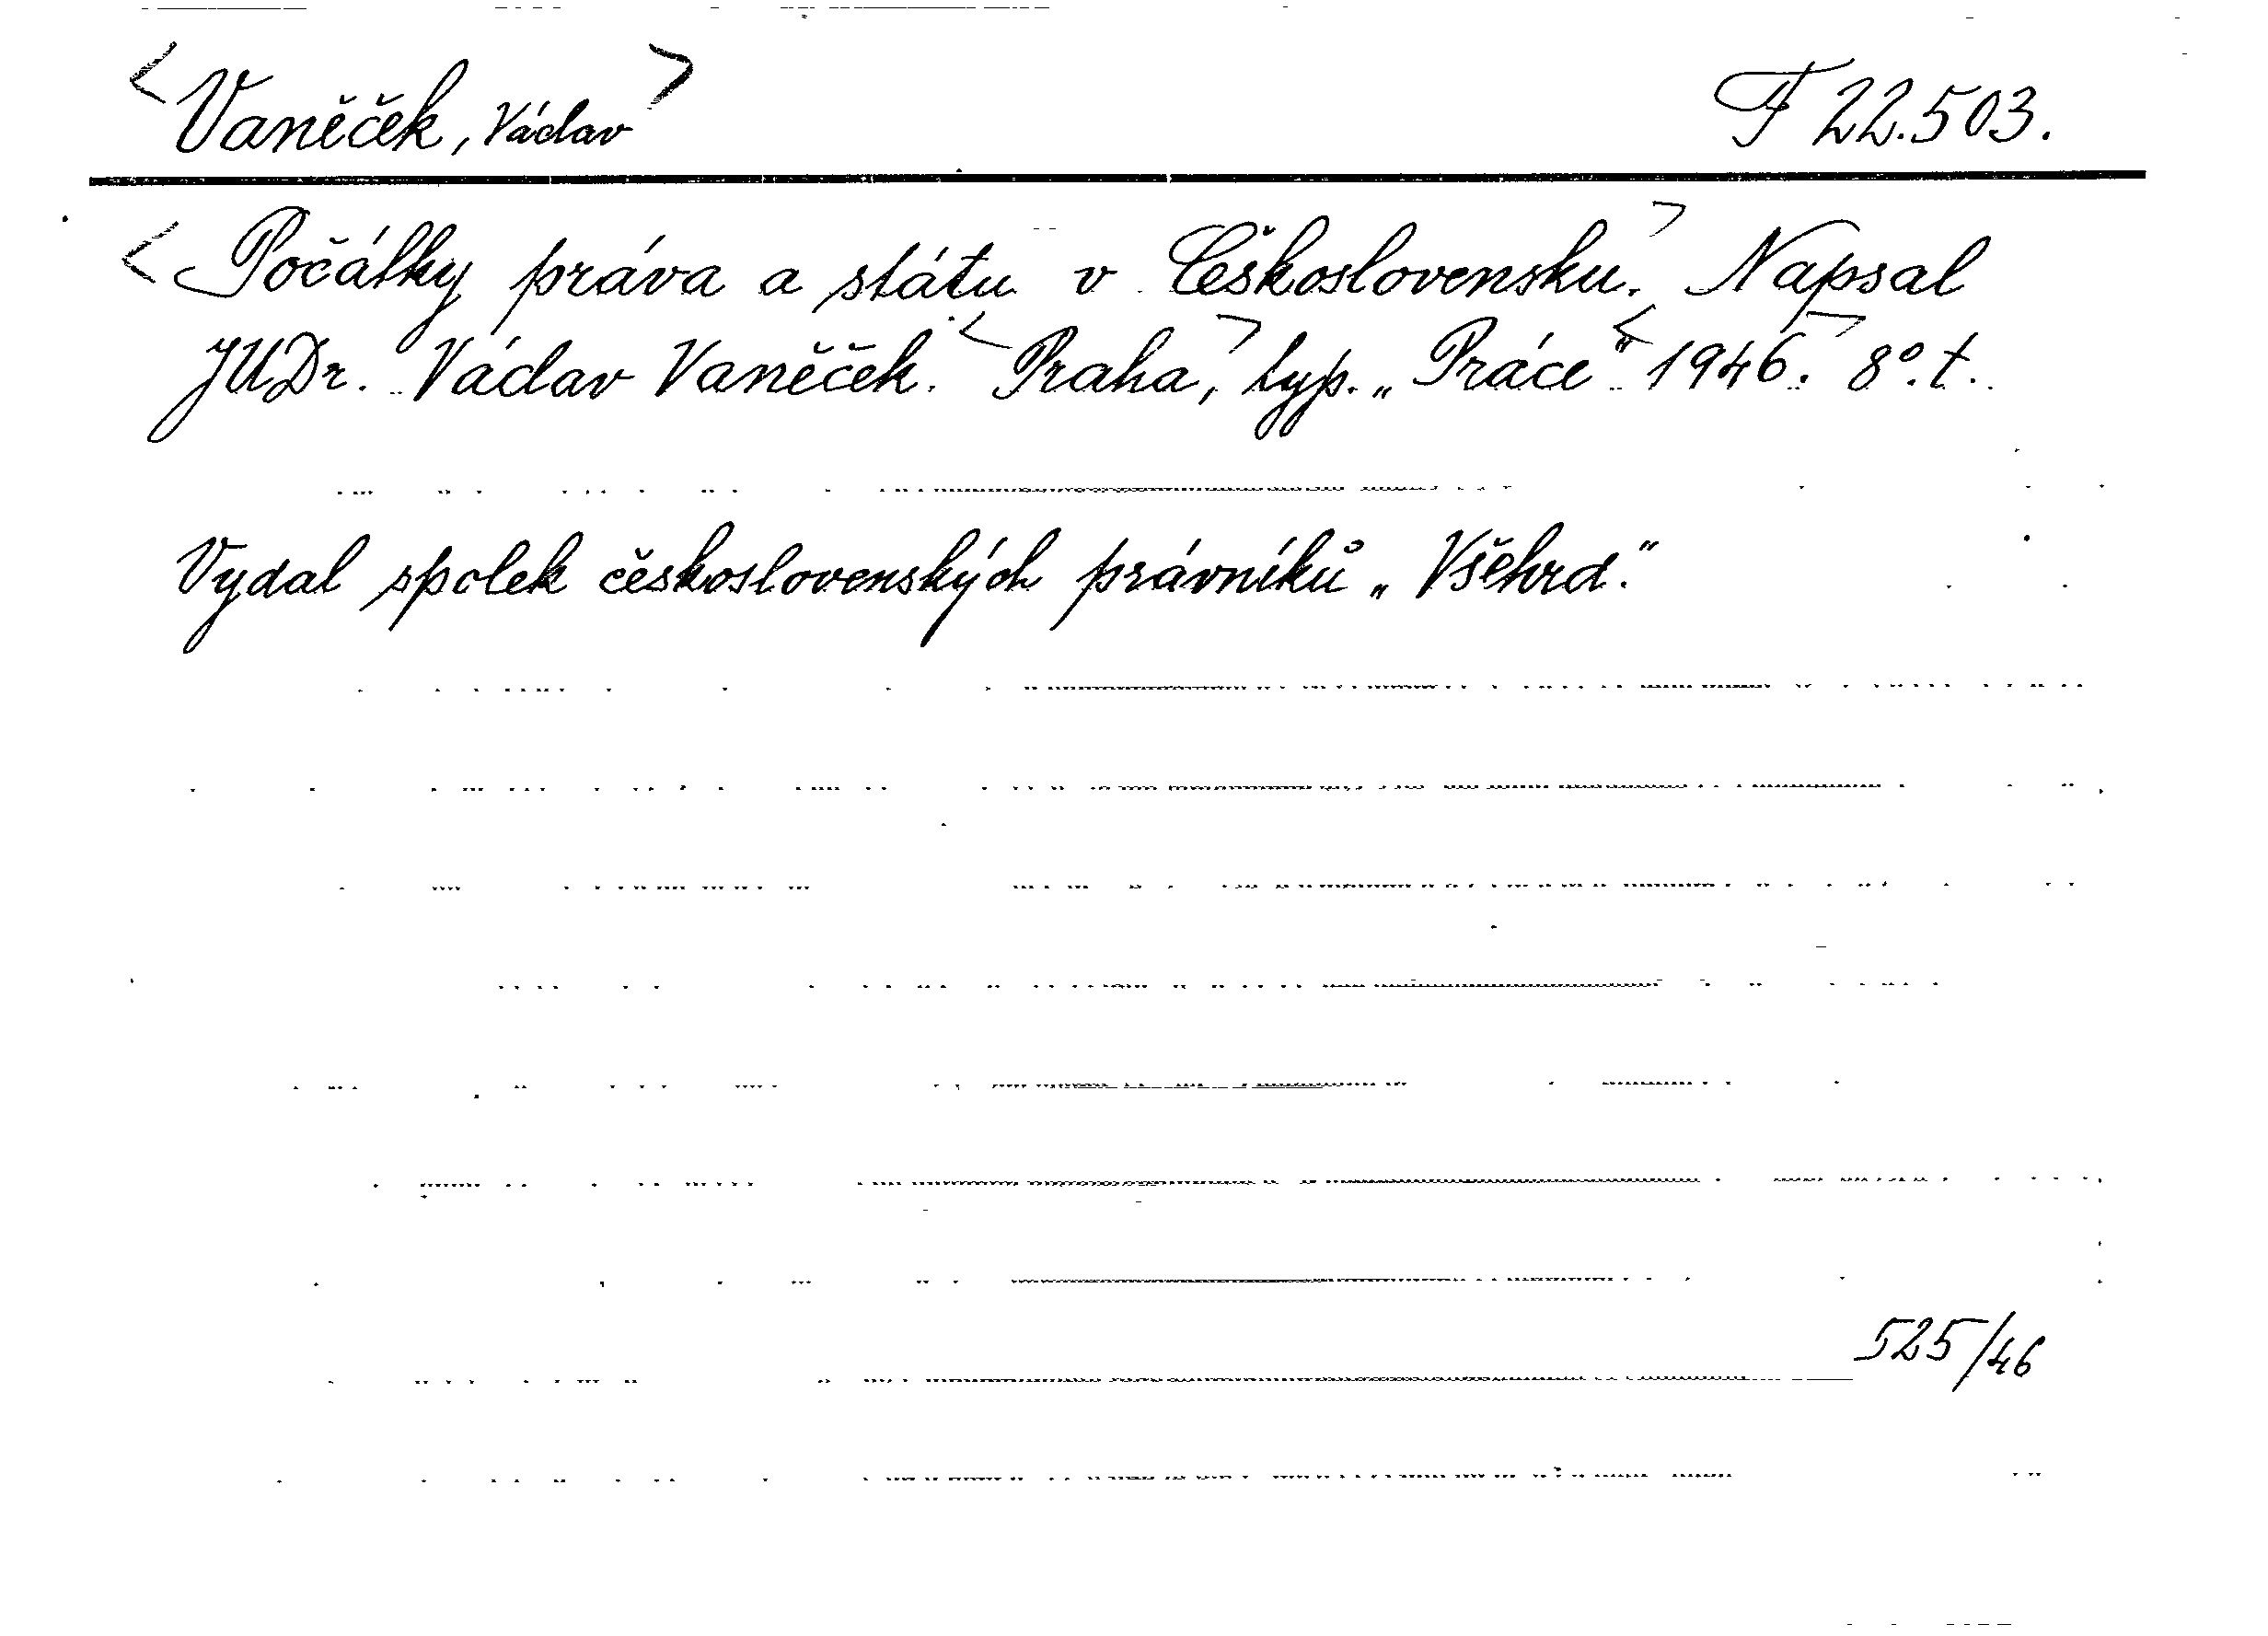 <Vaněček, Václav> F 22.503.
<Počátky práva a státu v Československu.> Napsal
JUDr. Václav Vaněček. <Praha,> typ. „Práce“ <1946.> 8°. t.
Vydal spolek československých právníků „Všehrd.“
525/46